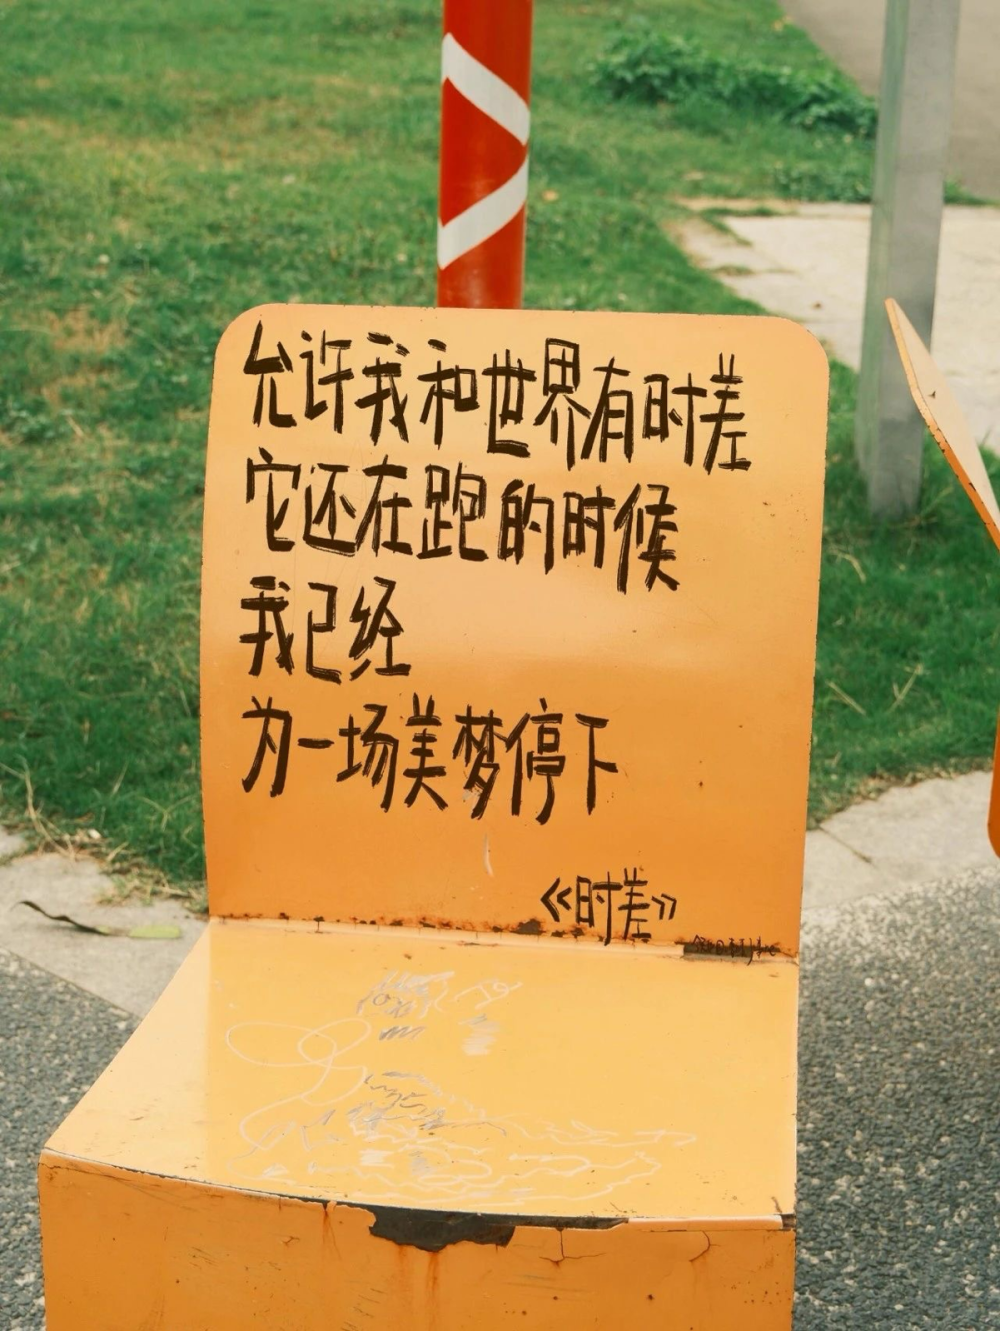 允许我和世界有时差
它还在跑的时候
我已经
为一场美梦停下
《时差》